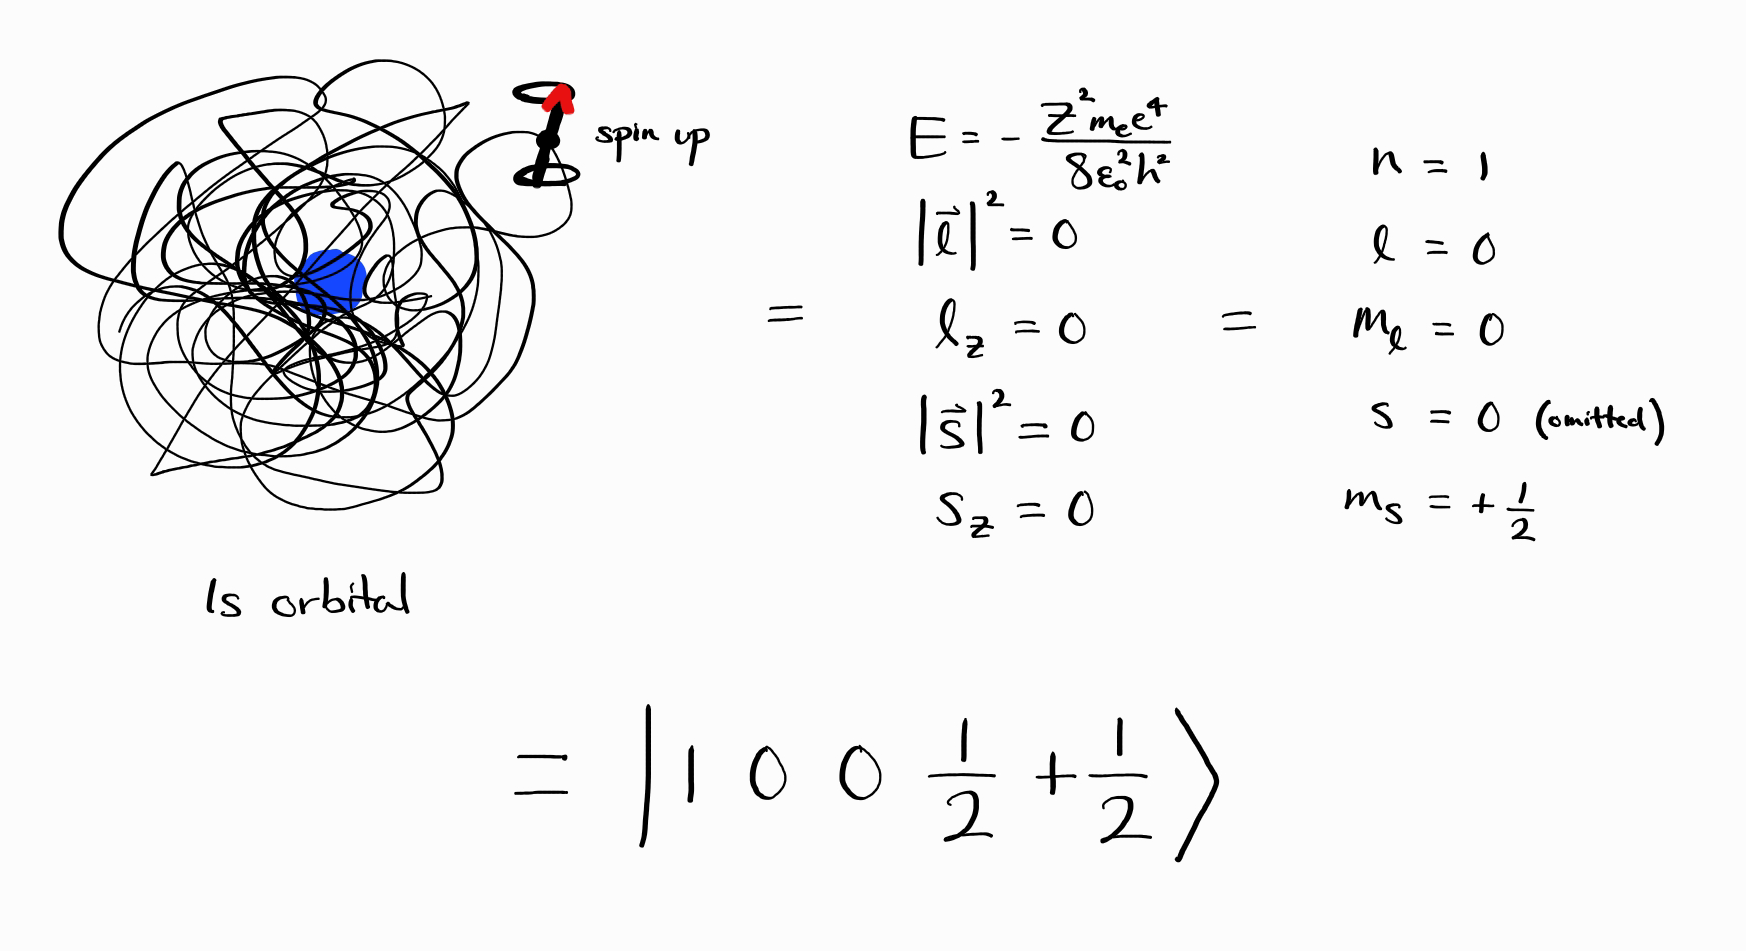 spin up
1s orbital
=
E = - Z²mₑe⁴ / 8ε₀²h²
|l⃗|² = 0
l_z = 0
|s⃗|² = 0
s_z = 0
=
n = 1
l = 0
m_l = 0
s = 0 (omitted)
m_s = + 1/2
= | 1 0 0 1/2 + 1/2 ⟩